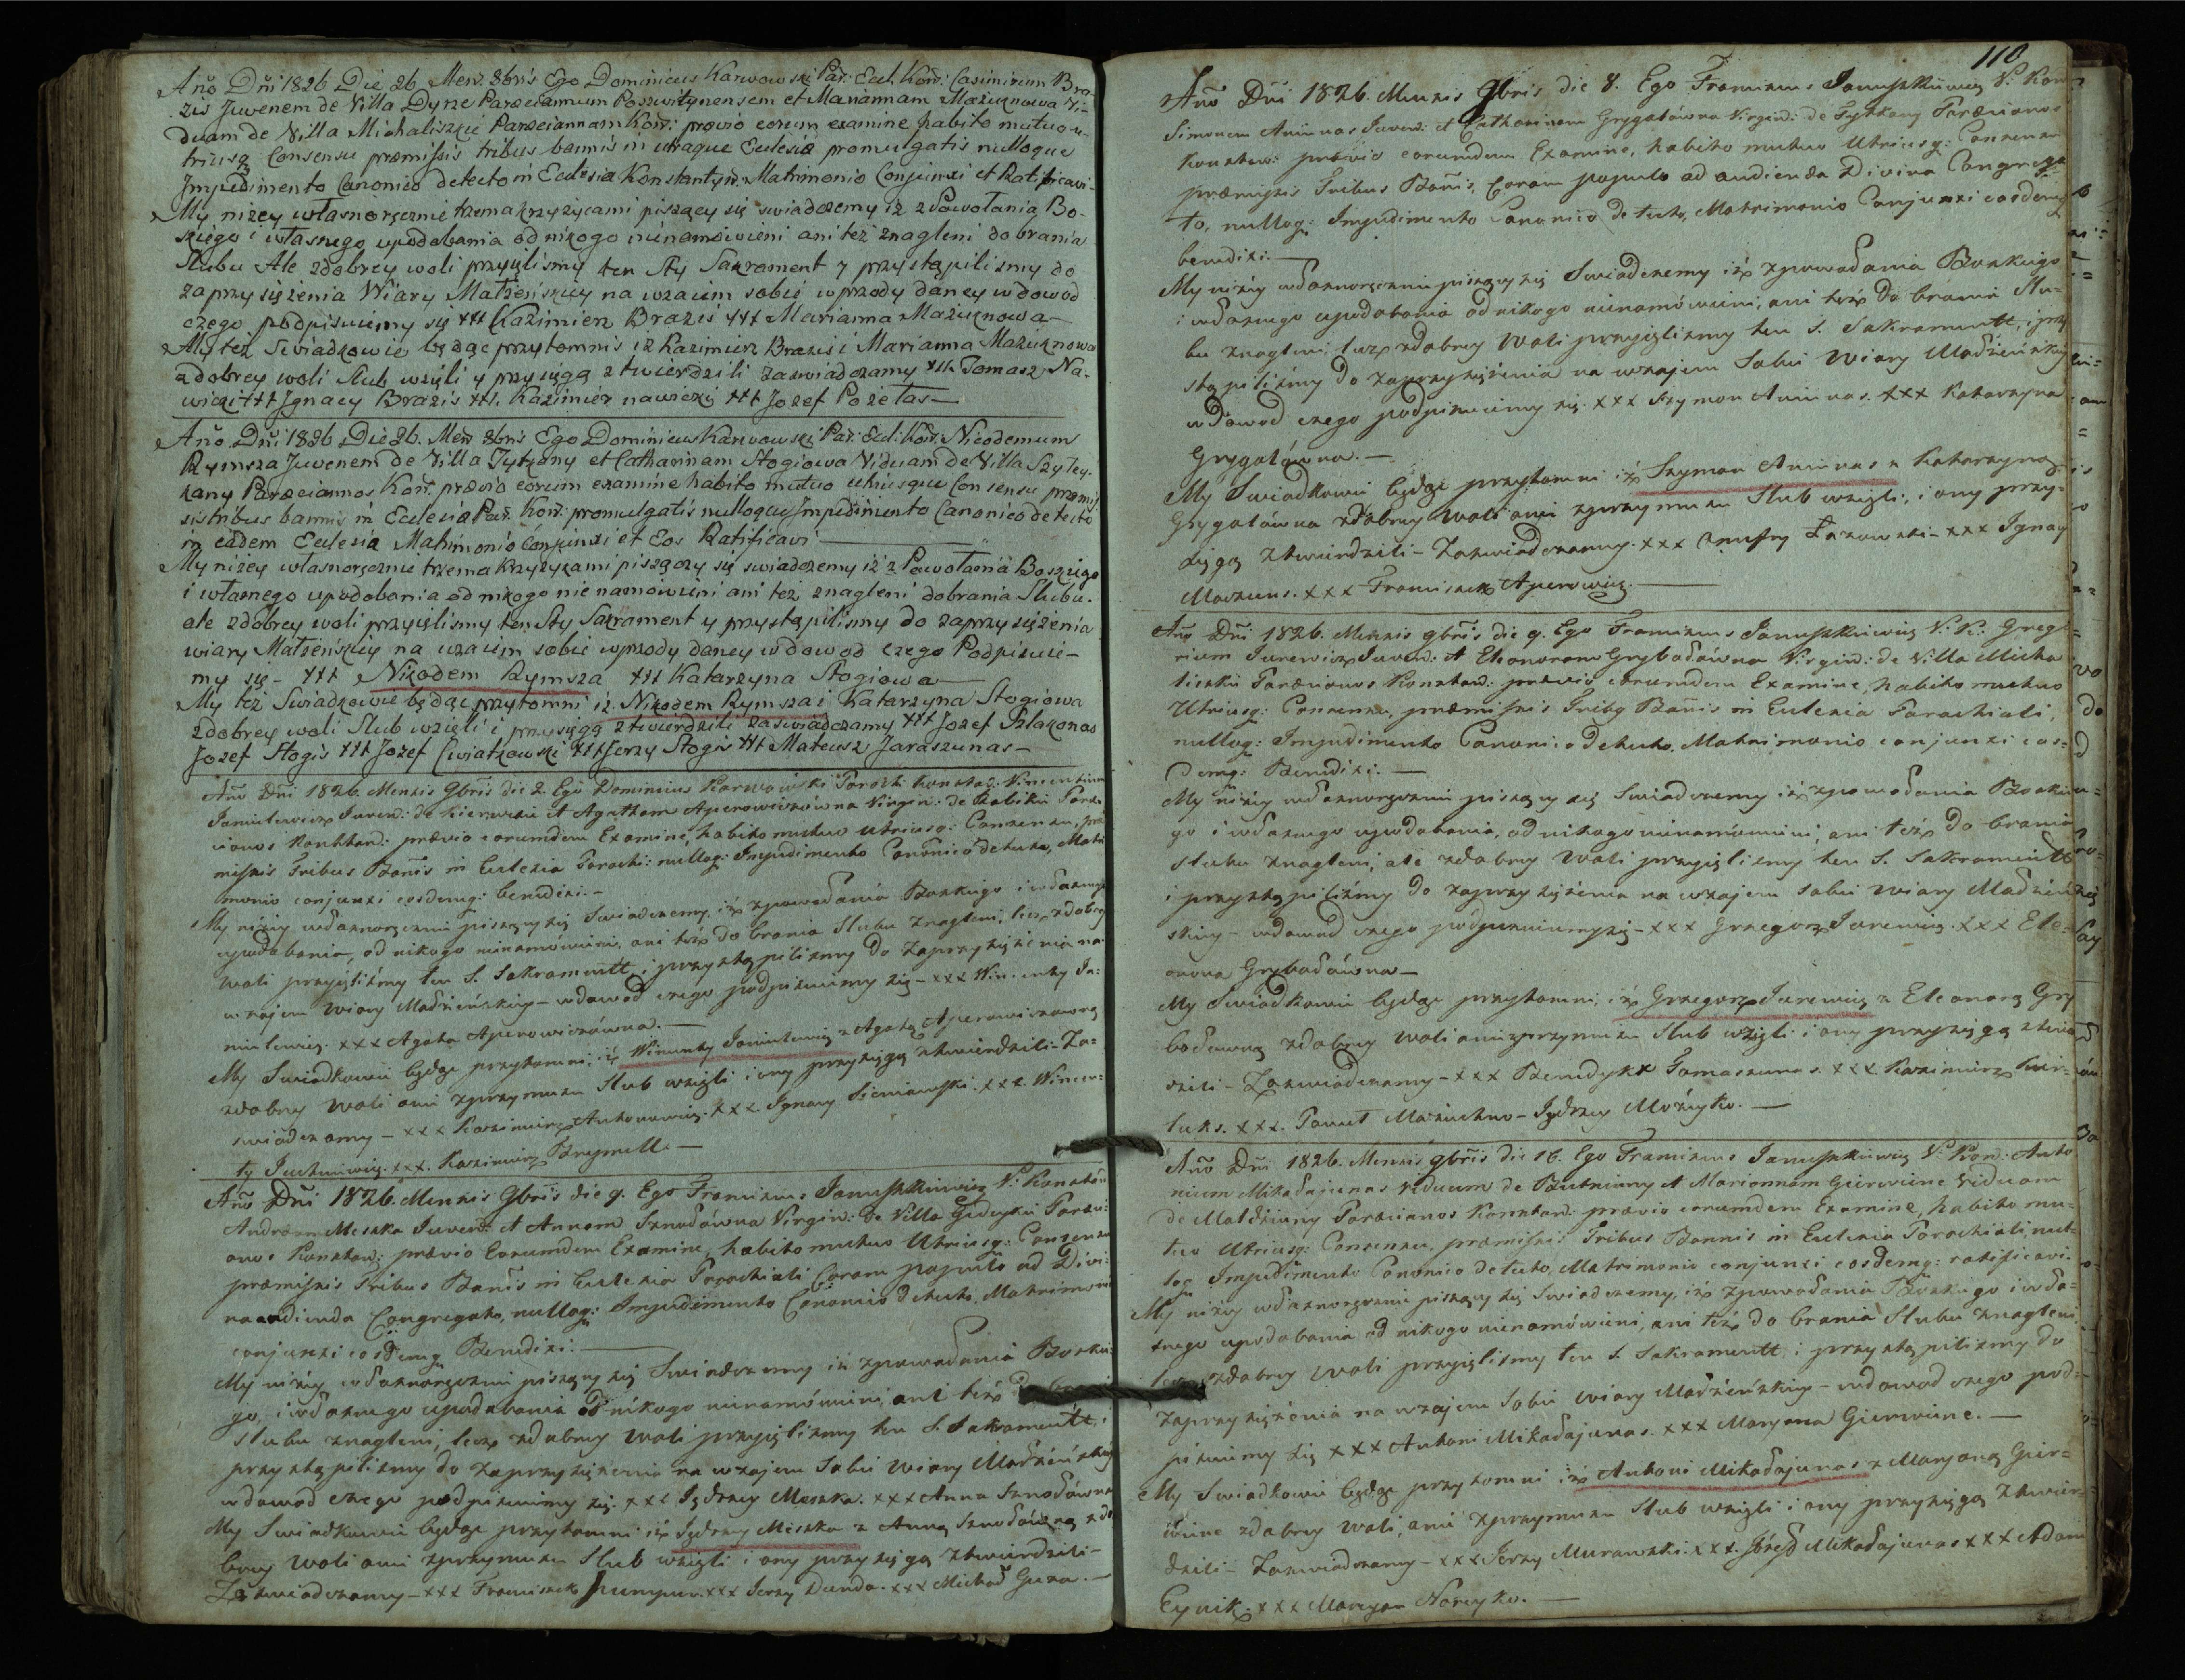 Año Dñi 1826 Die 26 Mens 8bris Ego Dominicus Karwowski Par: Eccl. Koñ: Casimirum Bra-
zis Juvenem de Villa Dyrze Paroeciannum Poszwitynensem et Mariannam Mażuknowa Vi-
duam de Villa Michaliszkie Paroeciannam Koñ: prævio eorum examine habito mutuo u-
triusq Consensu præmissis tribus bannis in utraque Eclesiâ promulgatis nulloque
Impedimento Canonico detecto in Eclesia Konstantyñ. Matrimonio Conjunxi et Ratificavi-
My niżey własnoręcznie trzema krzyżykami piszący się swiadczemy iż z Powołania Bo-
skiego i własnego upodobania od nikogo nienamówieni ani też znagleni do brania
Slubu Ale zdobrey woli przyięlismy ten Sty Sakrament y przystąpilismy do
zaprzysiężenia Wiary Małżeńskiey na wzaiem sobie wprzody daney w dowod
czego podpisuiemy się +++ Kazimierz Brazis +++ Marianna Mażuknowa-
My też Swiadkowie będąc przytomnis iż Kazimierz Brazis i Marianna Mażuknowa
z dobrey woli Slub wzięli y przysięgą ztwierdzili zaswiadczamy +++ Tomasz Na-
wicki +++ Ignacy Brazis +++ Kazimierz nawicki +++ Jozef Pożełas-
Año Dñi 1826 Die 26. Meñ 8bris Ego Dominicus Karwowski Par: Ecl: Koñ: Nicodemum
Rymsza Juvenem de Villa Tytkany et Catharinam Stogiowa Viduam de Villa Szyley-
kany Paroeciannos Koñ. prævio eorum examine habito mutuo utriusque Consensu præmis-
sis tribus bannis in Eclesia Par. Koñ: promulgatis nulloque Impedimento Canonico detecto
in eadem Eclesia Matrimonio Conjunxi et Eos Ratificavi
My niżey własnoręcznie trzema krzyżykami piszączy się swiadczemy iż z Powołania Boskiego
i własnego upodobania od nikogo nie namówieni ani też znagleni do brania Slubu.
ale zdobrey woli przyielismy ten Sty Sakrament y przystąpilismy do zaprzysiężenia
wiary Małżeńskiey na wzaiem sobie wprzody daney w dowod czego Podpisuie-
my się - +++ Nikodem Rymsza +++ Katarzyna Stogiowa
My też Swiadkowie będąc przytomni iż Nikodem Rymsza i Katarzyna Stogiowa
zdobrey woli Slub wzieli i przysięgą ztwierdzili zaswiadczamy +++ Jozef Szlakonas
Jozef Stogis +++ Jozef Cwiatkowski +++ Jerzy Stogis +++ Mateusz Jaraszunas-
Año Dñi 1826. Mensis 9bris die 2. Ego Dominicus Karwowski Paroch: Konstañ: Vincentium
Januleviczs Juveñ: de et Agatham Aperowiczówna Virgiñ: de Paroe-
cianos Konstand: prævio eorumdem Examine, habito mutuo utriusq: Consensu, præ
missis Tribus Bañis in Ecclesia Parochi: nulloq: Impedimento Canonico detecto, Matri
monio conjunxi eosdemq: benedixi.-
My niżey własnoręcznie piszący się Swiadczemy, iż zpowołania Boskiego i własnego
upodobania, od nikogo nienamówieni, ani też do brania Slubu znagleni, lecz zdobrey
woli przyięliśmy ten S. Sakramentt, i przystąpiliśmy do zaprzysiężenia na
wzajem Wiary Małżeńskiey - wdowod czego podpisuiemy się - xxx Wincenty Ja-
nulewicz. xxx Agata Aperowiczówna.-
My Swiadkowie będąc przytomni, iż Wincenty Janulewicz z Agatą Aperowiczowną
zdobrey Woli ani zprzymusu Slub wzięli i ony przysięgą ztwierdzili - Za-
swiadczamy - xxx Kazimierz Antonowicz. xxx. Ignacy Sieniawski. xxx. Wincen-
ty Juchniewicz. xxx. Kazimierz -
Año Dñi 1826. Mensis 9bris die 9. Ego Franciscus Januszkiewicz V: Konstañ:
Andream Meszka Juveñ: et Annam Sznodówna Virgiñ: de Villa Paroeci-
anos Konstand: prævio Eorumdem Examine, habito mutuo Utriusq: Consensu
præmissis Tribus Bañis in Ecclesia Parochiali Coram populo ad Divi-
na audienda Congregato, nulloq: Impedimento Canonico detecto, Matrimonio
conjunxi eosdemq Benedixi.-
My niżey własnoręcznie piszący się Swiadczemy iż zpowołania Boskie-
go, i własnego upodobania od nikogo nienamówieni, ani też do brania
slubu znagleni, lecz zdobrey Woli przyięliśmy ten S. Sakramentt, i
przystąpiliśmy do zaprzysiężenia na wzajem Sobie Wiary Małżeńskiey
wdowod czego podpisuiemy się. xxx Jędrzey Meszka. xxx Anna Sznodówna
My Swiadkowie będąc przytomni iż Jędrzey Meszka z Anną Sznodówną zdo-
brey Woli ani zprzymusu Slub wzięli i ony przysięgą ztwierdzili-
Zaswiadczamy - xxx Franciszek xxx Jerzy Dunda. xxx Michał Guza.-
110
Año Dñi 1826. Mensis 9bris die 8. Ego Franciscus Januszkiewicz V: Kon
Simonem Aninas Juveñ: et Catharinam Grygalówna Virgiñ: de Tytkany Paroecianos
Konstan: prævio eorumdem Examine, habito mutuo Utriusq: Consensu
præmissis Tribus Bañis, Coram populo ad audienda Divina Congrega-
to, nulloq: Impedimento Canonico detecto, Matrimonio Conjunxi eosdemq
benedixi.-
My niżey własnoręcznie piszący się Swiadczemy iż zpowołania Boskiego
i własnego upodobania od nikogo nienamówieni, ani też do brania Slu-
bu znagleni, lecz zdobrey Woli przyięliśmy ten S. Sakramentt, i przy
stąpiliśmy do zaprzysiężenia na wzajem Sobie Wiary Małżeńskiey
wdowod czego podpisuiemy się. xxx Szymon Aninas. xxx Katarzyna
Grygalówna.-
My Swiadkowie będąc przytomni iż Szymon Aninas z Katarzyną
Grygalówna zdobrey Woli ani zprzymusu Slub wzięli, i ony przy-
sięgą ztwierdzili - Zaswiadczamy. xxx Onufry Łazowski - xxx Ignacy
xxx Franciszek Aperowicz.-
Año Dñi 1826. Mensis 9bris die 9. Ego Franciscus Januszkiewicz V: K: Grego-
rium Jurewiczs Juveñ: et Eleonoram Grybodówna Virgiñ: de Villa Micha
liszkie Paroecianos Konstand: prævio eorumdem Examine, habito mutuo
Utriusq: Consensu, præmissis Tribq Bañis in Ecclesia Parochiali,
nulloq: Impedimento Canonico detecto. Matrimonio conjunxi eos-
demq: Benedixi.-
My niżey własnoręcznie piszący się Swiadczemy iż zpowołania Boskie-
go i własnego upodobania, od nikogo nienamówieni, ani też do brania
slubu znagleni, ale zdobrey Woli przyięliśmy ten S. Sakramentt
i przystąpiliśmy do zaprzysiężenia na wzajem sobie Wiary Małżeń
skiey - wdowod czego podpisuiemy się - xxx Grzegorz Jurewicz. xxx Ele-
onora Grybodówna-
My Swiadkowie będąc przytomni, iż Grzegorz Jurewicz z Eleonorą Gry
bodowną zdobrey Woli ani zprzymusu Slub wzięli i ony przysięgą ztwier
dzili - Zaswiadczamy - xxx Benedykt Tomaszunas. xxx Kazimierz
xxx. Paweł Maziuchno - Jędrzey Możeyko.-
Año Dñi 1826. Mensis 9bris die 16. Ego Franciscus Januszkiewicz V: Kon: Anto
nium Mikołajunas viduum de et Mariannam Gierwiine viduam
de Maldziuny Paroecianos Konstand: prævio eorumdem Examine, habito mu-
tuo Utriusq: Consensu, præmissis Tribus Bannis in Ecclesia Parochiali, nul-
loq Impedimento Canonico detecto, Matrimonio conjunxi eosdemq: ratificavi.
My niżey własnoręcznie piszący się Swiadczemy, iż zpowołania Boskiego i wła-
snego upodobania od nikogo nienamówieni, ani też do brania Slubu znagleni,
lecz zdobrey Woli przyięliśmy ten S. Sakramentt, i przystąpiliśmy do
zaprzysiężenia na wzajem Sobie Wiary Małżeńskiey - wdowod czego pod-
pisuiemy się xxx Antoni Mikołajunas. xxx Maryana Gierwiine.-
My Swiadkowie będąc przytomni iż Antoni Mikołajunas z Maryaną Gier-
wiine, zdobrey Woli, ani zprzymusu Slub wzięli i ony przysięgą ztwier
dzili - Zaswiadczamy - xxx Jerzy Murawski. xxx. Józef Mikołajunas xxx Adam
Eynik. xxx Maryan Noreyko.-